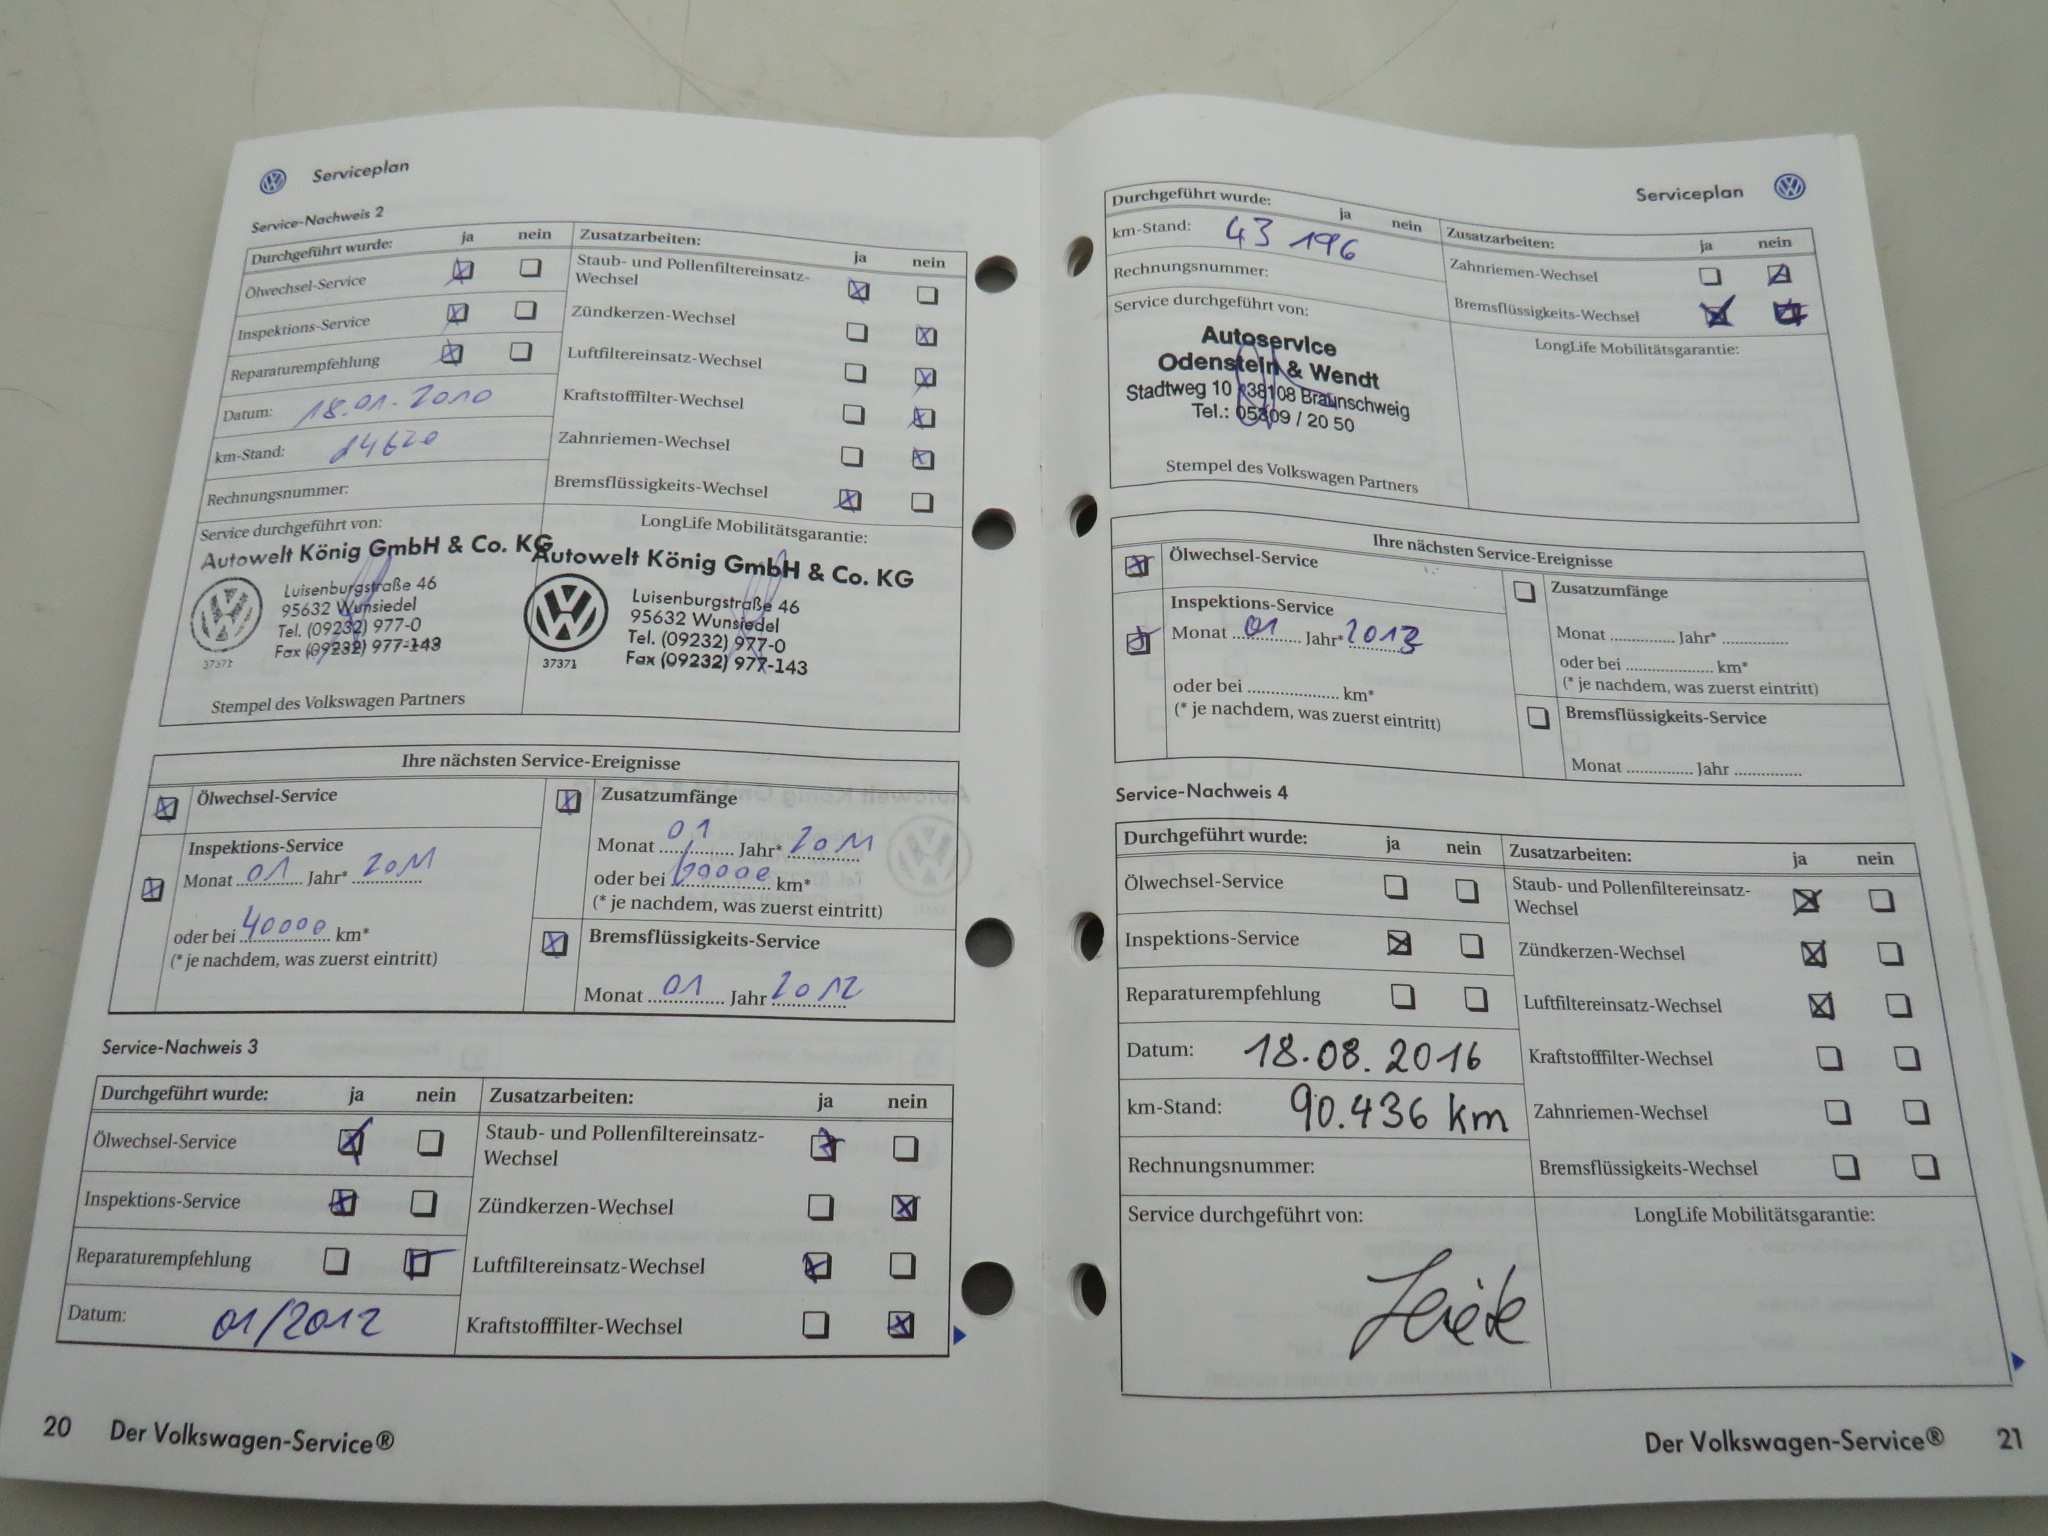 Serviceplan
Service-Nachweis 2
Durchgeführt wurde: ja nein
Ölwechsel-Service
Inspektions-Service
Reparaturempfehlung
Datum: 18.01.2010
km-Stand: 14620
Rechnungsnummer:
Zusatzarbeiten: ja nein
Staub- und Pollenfiltereinsatz-
Wechsel
Zündkerzen-Wechsel
Luftfiltereinsatz-Wechsel
Kraftstofffilter-Wechsel
Zahnriemen-Wechsel
Bremsflüssigkeits-Wechsel
Service durchgeführt von:
Autowelt König GmbH & Co. KG
Luisenburgstraße 46
95632 Wunsiedel
Tel. (09232) 977-0
Fax (09232) 977-143
37371
Stempel des Volkswagen Partners
LongLife Mobilitätsgarantie:
Autowelt König GmbH & Co. KG
Luisenburgstraße 46
95632 Wunsiedel
Tel. (09232) 977-0
Fax (09232) 977-143
37371
Ihre nächsten Service-Ereignisse
Ölwechsel-Service
Inspektions-Service
Monat 01 Jahr* 2011
oder bei 40000 km*
(* je nachdem, was zuerst eintritt)
Zusatzumfänge
Monat 01 Jahr* 2011
oder bei 60000 km*
(* je nachdem, was zuerst eintritt)
Bremsflüssigkeits-Service
Monat 01 Jahr 2012
Service-Nachweis 3
Durchgeführt wurde: ja nein
Ölwechsel-Service
Inspektions-Service
Reparaturempfehlung
Datum: 01/2012
Zusatzarbeiten: ja nein
Staub- und Pollenfiltereinsatz-
Wechsel
Zündkerzen-Wechsel
Luftfiltereinsatz-Wechsel
Kraftstofffilter-Wechsel
20 Der Volkswagen-Service®
Serviceplan
Durchgeführt wurde: ja nein
km-Stand: 43 196
Rechnungsnummer:
Zusatzarbeiten: ja nein
Zahnriemen-Wechsel
Bremsflüssigkeits-Wechsel
Service durchgeführt von:
Autoservice
Odenstein & Wendt
Stadtweg 10 38108 Braunschweig
Tel.: 05309 / 20 50
Stempel des Volkswagen Partners
LongLife Mobilitätsgarantie:
Ihre nächsten Service-Ereignisse
Ölwechsel-Service
Inspektions-Service
Monat 01 Jahr* 2013
oder bei ............ km*
(* je nachdem, was zuerst eintritt)
Zusatzumfänge
Monat ............ Jahr* ............
oder bei ............ km*
(* je nachdem, was zuerst eintritt)
Bremsflüssigkeits-Service
Monat ............ Jahr ............
Service-Nachweis 4
Durchgeführt wurde: ja nein
Ölwechsel-Service
Inspektions-Service
Reparaturempfehlung
Datum: 18.08.2016
km-Stand: 90.436 km
Rechnungsnummer:
Zusatzarbeiten: ja nein
Staub- und Pollenfiltereinsatz-
Wechsel
Zündkerzen-Wechsel
Luftfiltereinsatz-Wechsel
Kraftstofffilter-Wechsel
Zahnriemen-Wechsel
Bremsflüssigkeits-Wechsel
Service durchgeführt von:
LongLife Mobilitätsgarantie:
Der Volkswagen-Service® 21